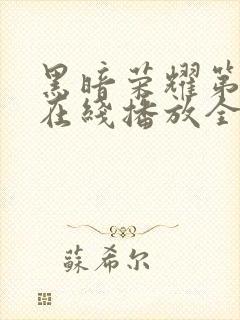 黑暗荣耀第
在綫播放全
蘇希尔